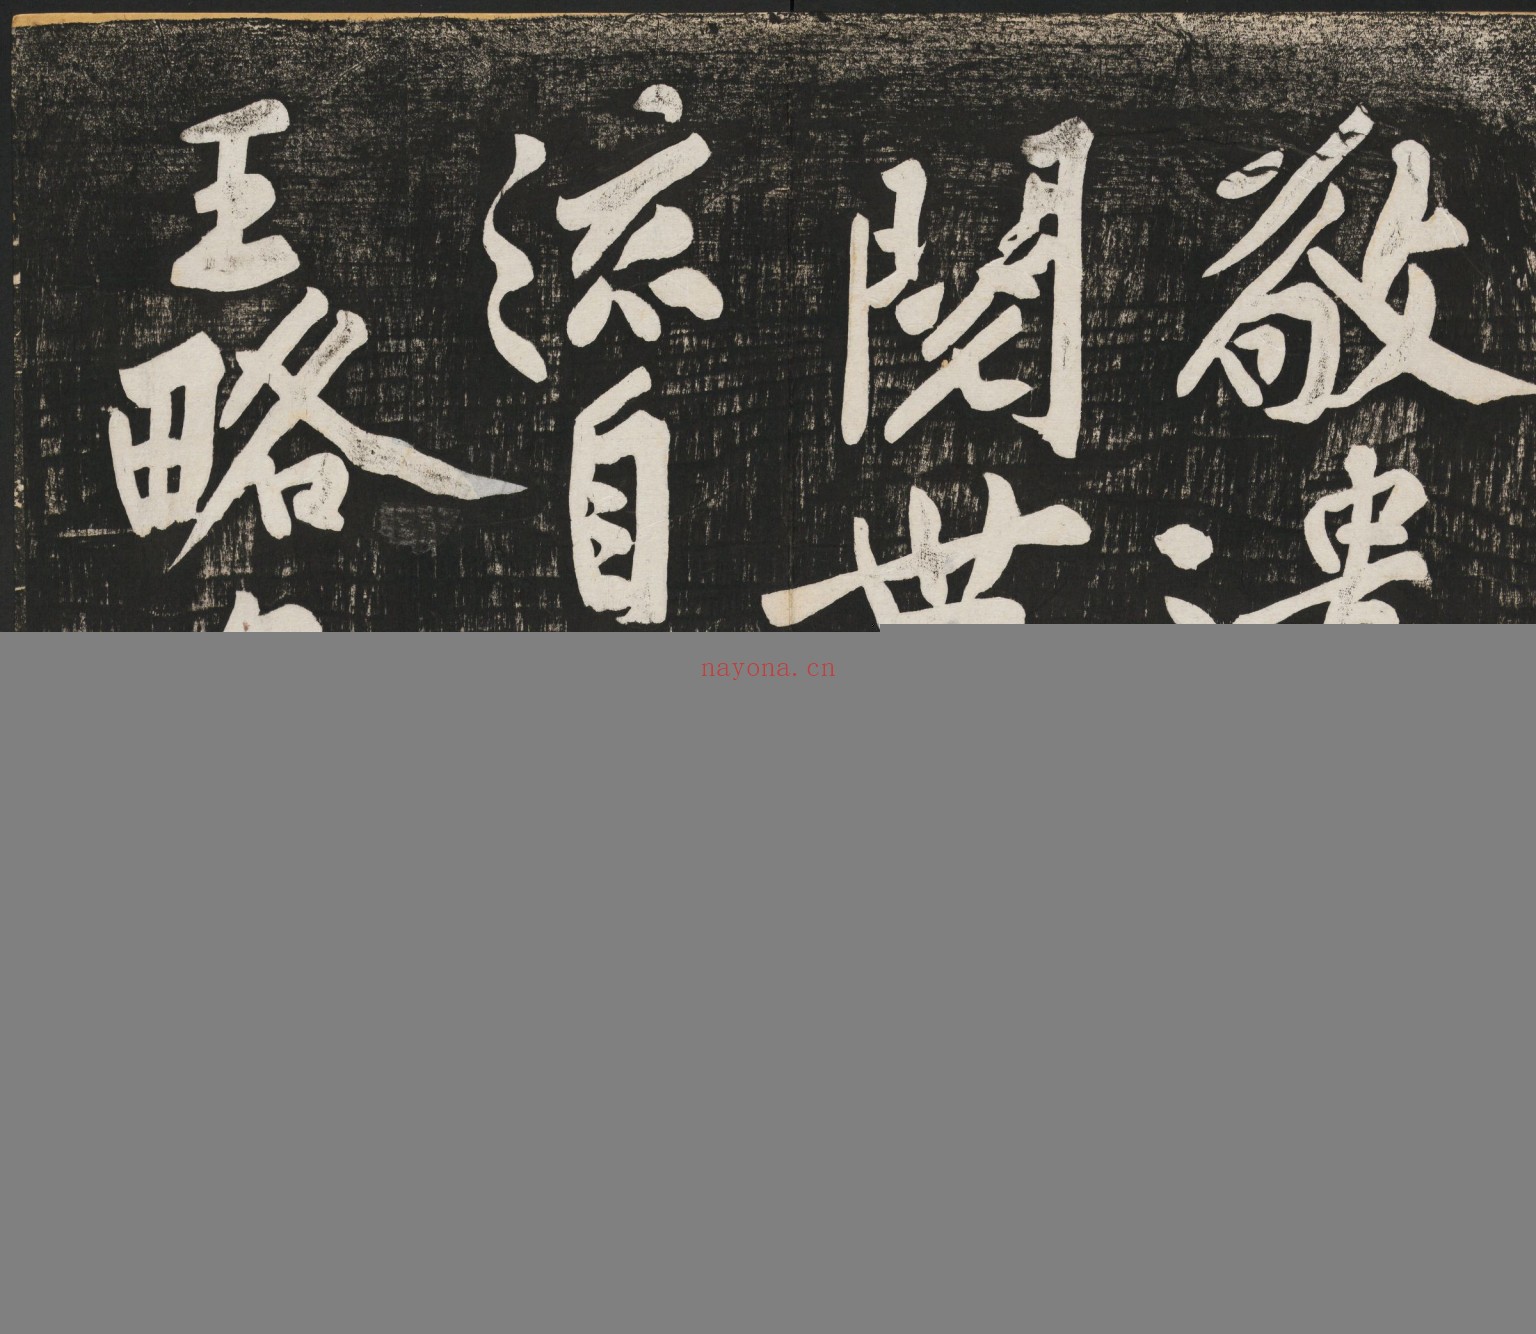 敬
閱世
流自
王略
nayona.cn